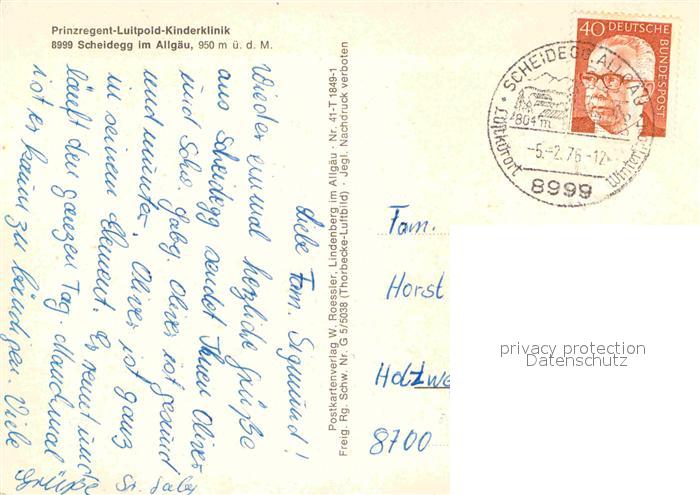 Prinzregent-Luitpold-Kinderklinik
8999 Scheidegg im Allgäu, 950 m ü. d. M.
Liebe Fam. Sigmund!
Wieder einmal herzliche Grüße
aus Scheidegg sendet Ihnen Oliver
und Schw. Gaby. Oliver ist gesund
und munter. Oliver ist ganz
in seinem Element. Er rennt und
läuft den ganzen Tag. Manchmal
ist er kaum zu bändigen. Viele
Grüße Sr. Gaby
Postkartenverlag W. Roessler, Lindenberg im Allgäu · Nr. 41-T 1849-1
Freig. Rg. Schw. Nr. G 5/5038 (Thorbecke-Luftbild) · Jegl. Nachdruck verboten
40 DEUTSCHE
BUNDESPOST
SCHEIDEGG ALLGÄU
804 m
-5.-2.76-12
Luftkurort
8999
Fam.
Horst
Holzwe
8700
privacy protection
Datenschutz